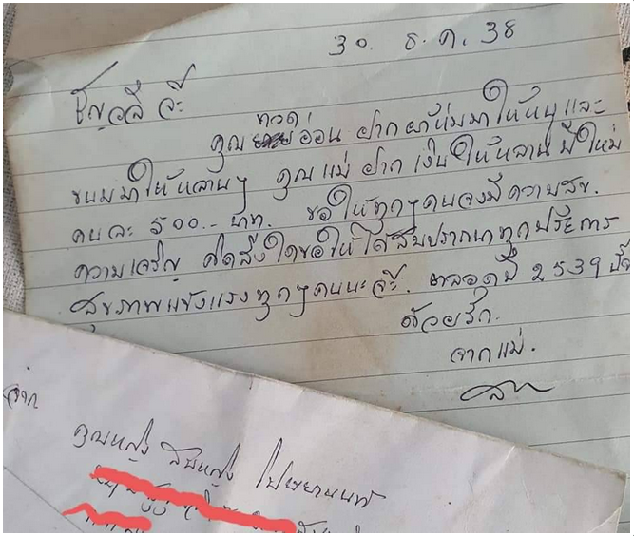 30. ธ.ค. 38
ชัญวลี จ๊ะ
ทวด
คุณอ่อน ฝากผ้าห่มมาให้หนูและ
ขนมมาให้หลานๆ คุณแม่ ฝากเงินให้หลานปีใหม่
คนละ 500.- บาท. ขอให้ทุกๆคนจงมีความสุข.
ความเจริญ คิดสิ่งใดขอให้ได้สมปรารถนาทุกประการ
สุขภาพแข็งแรงทุกๆคนนะจ๊ะ. ตลอดปี 2539 นี้
ด้วยรัก.
จากแม่.
จาก
คุณหญิง